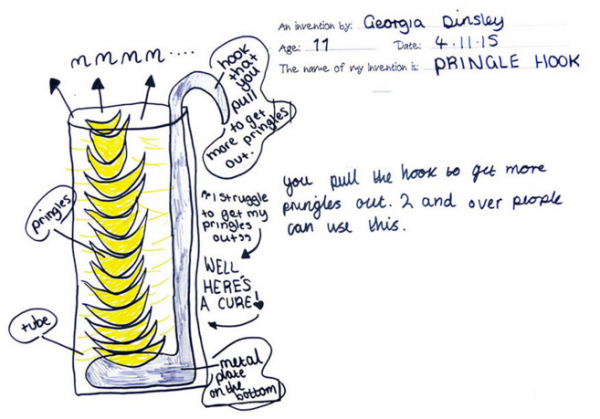 An invention by: Georgia Dinsley
Age: 11 Date: 4.11.15
The name of my invention is: PRINGLE HOOK
mmmm....
hook
that
you
pull
to get
more pringles
out.
you pull the hook to get more
pringles out. 2 and over people
can use this.
"I struggle
to get my
pringles
out"
WELL
HERE'S
A CURE!
pringles
tube
metal
plate
on the
bottom